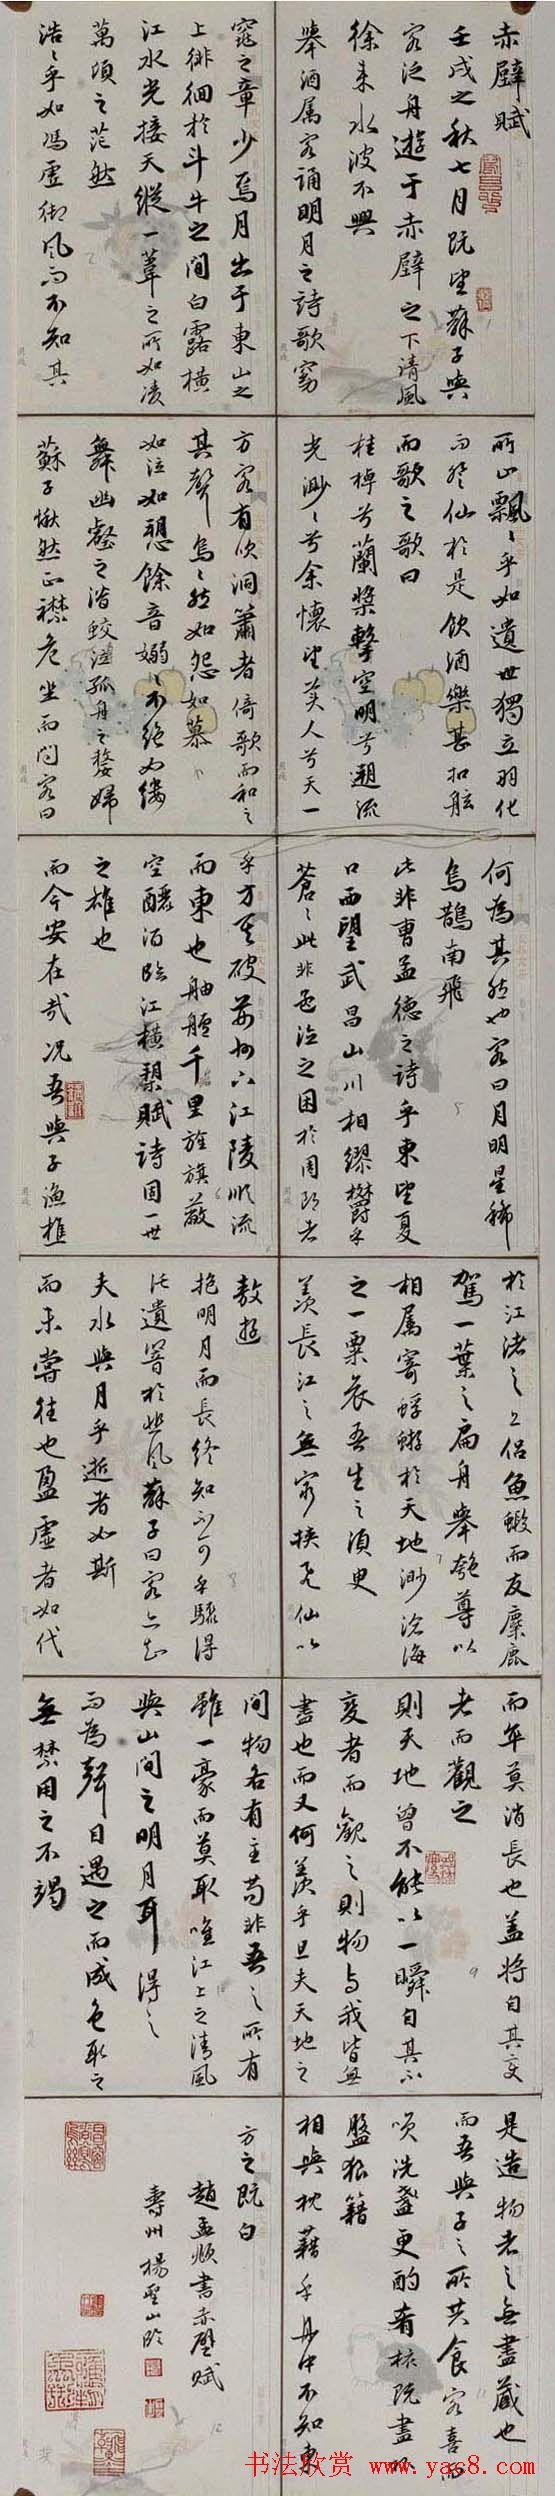 赤壁賦
壬戌之秋七月既望蘇子與
客泛舟遊于赤壁之下清風
徐来水波不興
舉酒属客誦明月之詩歌窈
窕之章少焉月出于東山之
上徘徊於斗牛之間白露横
江水光接天縱一葦之所如凌
萬頃之茫然
浩〻乎如馮虚御風而不知其
所止飄〻乎如遺世獨立羽化
而登仙於是飲酒樂甚扣舷
而歌之歌曰
桂棹兮蘭槳擊空明兮遡流
光渺〻兮余懷望美人兮天一
方客有吹洞簫者倚歌而和之
其聲烏〻然如怨如慕
如泣如愬餘音嫋〻不絶如縷
舞幽壑之潛蛟泣孤舟之嫠婦
蘇子愀然正襟危坐而問客曰
何為其然也客曰月明星稀
烏鵲南飛
此非曹孟德之詩乎東望夏
口西望武昌山川相繆欎乎
蒼〻此非孟德之困於周郎者
乎方其破荊州下江陵順流
而東也舳艫千里旌旗蔽
空釃酒臨江横槊賦詩固一世
之雄也
而今安在哉况吾與子漁樵
於江渚之上侣魚蝦而友麋鹿
駕一葉之扁舟舉匏尊以
相属寄蜉蝣於天地渺滄海
之一粟哀吾生之須臾
羨長江之無窮挟飛仙以
敖遊
抱明月而長終知不可乎驟得
託遺響於悲風蘇子曰客亦知
夫水與月乎逝者如斯
而未嘗往也盈虚者如代
而卒莫消長也蓋将自其變
者而觀之
則天地曾不能以一瞬自其不
變者而觀之則物与我皆無
盡也而又何羨乎且夫天地之
間物各有主苟非吾之所有
雖一豪而莫取唯江上之清風
與山間之明月耳得之
而為聲目遇之而成色取之
無禁用之不竭
是造物者之無盡藏也
而吾與子之所共食客喜而
咲洗盞更酌肴核既盡杯
盤狼籍
相與枕藉乎舟中不知東
方之既白
趙孟頫書赤壁賦
壽州楊聖山臨
书法欣赏 www.yac8.com